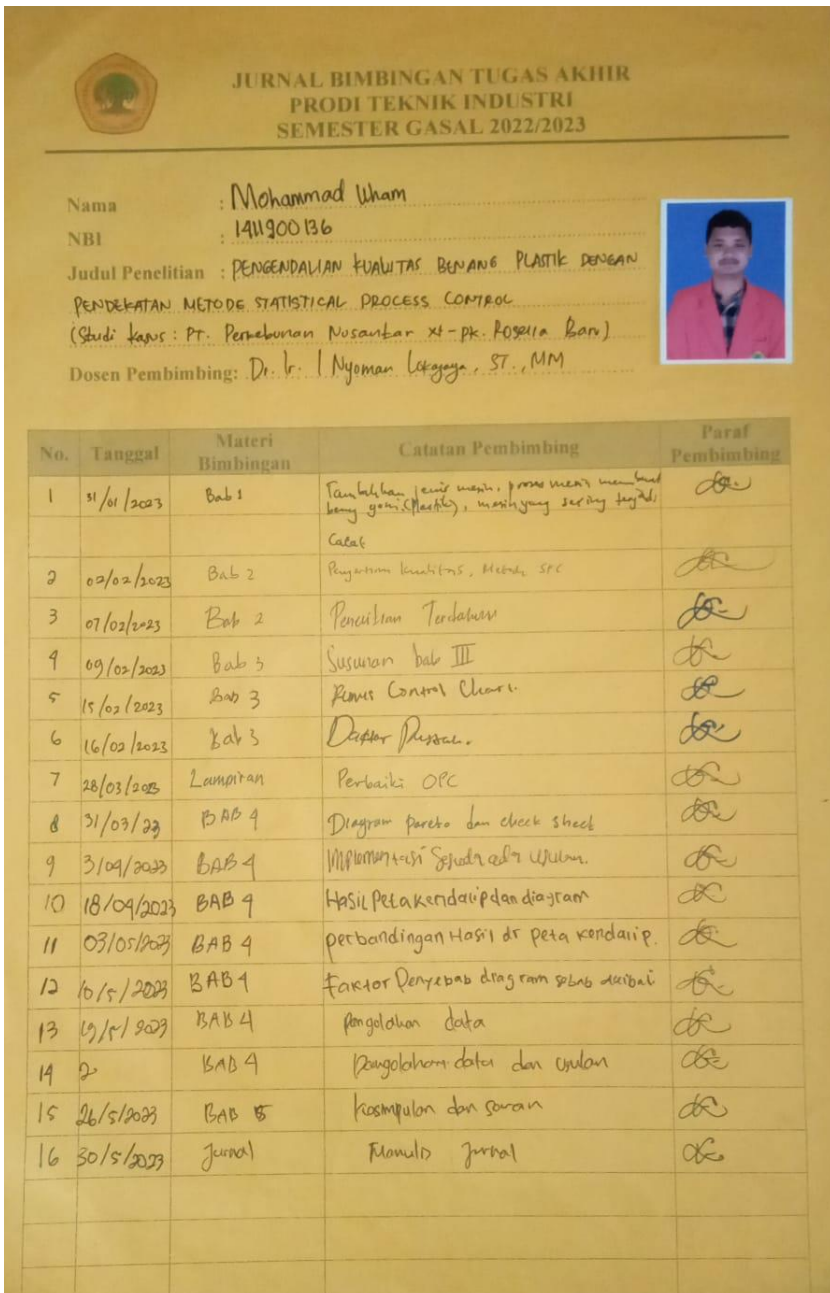 JURNAL BIMBINGAN TUGAS AKHIR
PRODI TEKNIK INDUSTRI
SEMESTER GASAL 2022/2023
Nama : Mohammad Ilham
NBI : 1411900136
Judul Penelitian : PENGENDALIAN KUALITAS BENANG PLASTIK DENGAN
PENDEKATAN METODE STATISTICAL PROCESS CONTROL
(Studi kasus : PT. Perkebunan Nusantar XI - PK. Rosella Baru)
Dosen Pembimbing: Dr. Ir. I Nyoman Lokajaya, ST., MM
No. Tanggal Materi Bimbingan Catatan Pembimbing Paraf Pembimbing
1 31/01/2023 Bab 1 Tambahkan jenis mesin, proses mesin membuat
benang goni (Plastik), mesin yang sering terjadi
Cacat
2 02/02/2023 Bab 2 Pengertian kualitas, Metode SPC
3 07/02/2023 Bab 2 Penelitian Terdahulu
4 09/02/2023 Bab 3 Susunan bab III
5 15/02/2023 Bab 3 Rumus Control Chart.
6 16/02/2023 Bab 3 Daftar Pustaka.
7 28/03/2023 Lampiran Perbaiki OPC
8 31/03/23 BAB 4 Diagram pareto dan check sheet
9 3/04/2023 BAB 4 Implementasi ada usulan.
10 18/04/2023 BAB 4 Hasil Peta kendali p dan diagram
11 03/05/2023 BAB 4 perbandingan Hasil dr peta kendali p.
12 10/5/2023 BAB 4 Faktor Penyebab diagram sebab akibat
13 19/5/2023 BAB 4 Pengolahan data
14 2 BAB 4 Pengolahan data dan usulan
15 26/5/2023 BAB 5 Kesimpulan dan saran
16 30/5/2023 Jurnal Menulis Jurnal